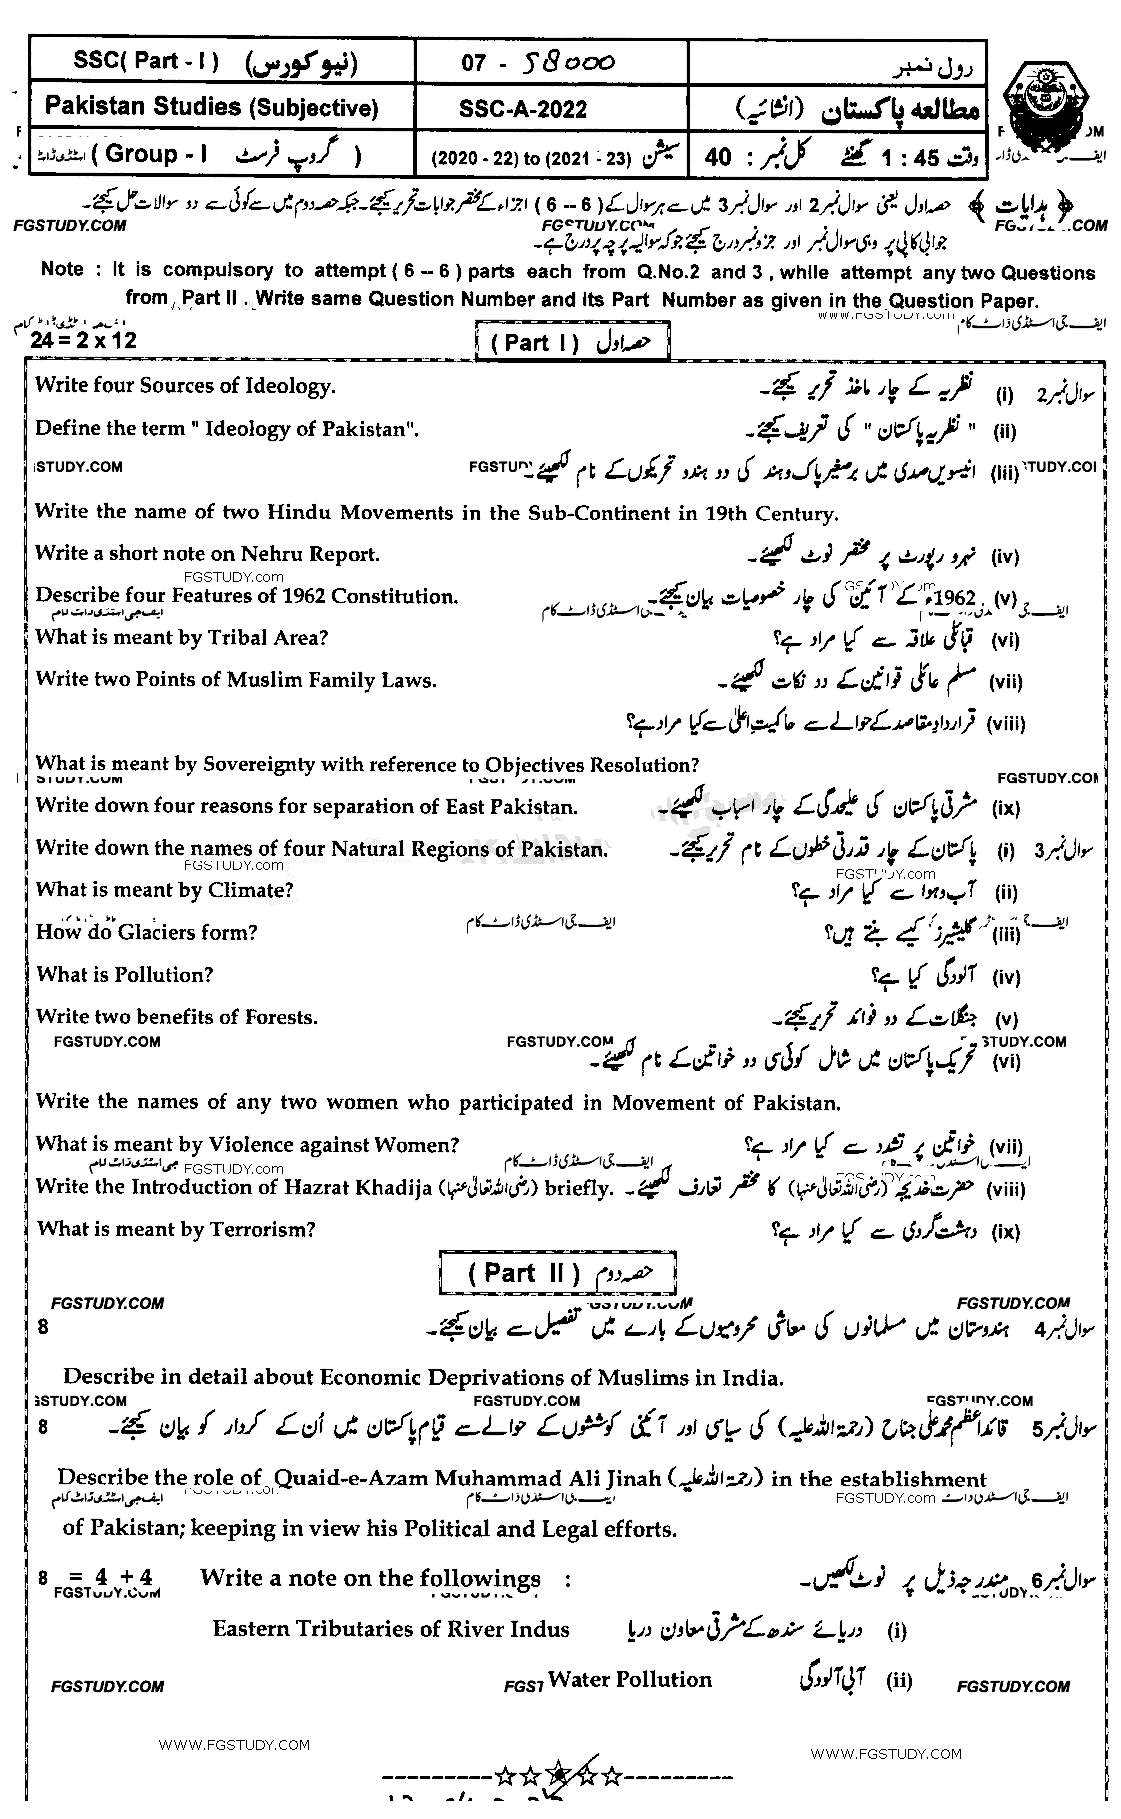 SSC( Part - I ) (نیو کورس) 07 - 58000 رول نمبر
Pakistan Studies (Subjective) SSC-A-2022 مطالعہ پاکستان (انشائیہ)
( Group - I گروپ فرسٹ ) (2020 - 22) to (2021 - 23) سیشن کل نمبر : 40 وقت 1 : 45 گھنٹے
﴿ ہدایات ﴾ حصہ اول یعنی سوال نمبر 2 اور سوال نمبر 3 میں سے ہر سوال کے ( 6 -- 6 ) اجزاء کے مختصر جوابات تحریر کیجئے۔ جبکہ حصہ دوم میں سے کوئی سے دو سوالات حل کیجئے۔
FGSTUDY.COM FGSTUDY.COM
جوابی کاپی پر وہی سوال نمبر اور جز نمبر درج کیجئے جو کہ سوالیہ پرچہ پر درج ہے۔
Note : It is compulsory to attempt ( 6 -- 6 ) parts each from Q.No.2 and 3 , while attempt any two Questions
from Part II . Write same Question Number and its Part Number as given in the Question Paper.
www.FGSTUDY.com ایف جی اسٹڈی ڈاٹ کام
24 = 2 x 12 ( Part I ) حصہ اول
Write four Sources of Ideology. سوال نمبر 2 (i) نظریہ کے چار ماخذ تحریر کیجئے۔
Define the term " Ideology of Pakistan". (ii) " نظریہ پاکستان " کی تعریف کیجئے۔
(iii) انیسویں صدی میں برصغیر پاک و ہند کی دو ہندو تحریکوں کے نام لکھیئے۔
Write the name of two Hindu Movements in the Sub-Continent in 19th Century.
Write a short note on Nehru Report. (iv) نہرو رپورٹ پر مختصر نوٹ لکھیئے۔
FGSTUDY.com
Describe four Features of 1962 Constitution. (v) 1962ء کے آئین کی چار خصوصیات بیان کیجئے۔
What is meant by Tribal Area? (vi) قبائلی علاقہ سے کیا مراد ہے؟
Write two Points of Muslim Family Laws. (vii) مسلم عائلی قوانین کے دو نکات لکھیئے۔
(viii) قراردادِ مقاصد کے حوالے سے حاکمیتِ اعلیٰ سے کیا مراد ہے؟
What is meant by Sovereignty with reference to Objectives Resolution?
FGSTUDY.COM
Write down four reasons for separation of East Pakistan. (ix) مشرقی پاکستان کی علیحدگی کے چار اسباب لکھیئے۔
Write down the names of four Natural Regions of Pakistan. سوال نمبر 3 (i) پاکستان کے چار قدرتی خطوں کے نام تحریر کیجئے۔
FGSTUDY.com FGSTUDY.com
What is meant by Climate? (ii) آب و ہوا سے کیا مراد ہے؟
How do Glaciers form? (iii) گلیشیرز کیسے بنتے ہیں؟
ایف جی اسٹڈی ڈاٹ کام
What is Pollution? (iv) آلودگی کیا ہے؟
Write two benefits of Forests. (v) جنگلات کے دو فوائد تحریر کیجئے۔
FGSTUDY.COM FGSTUDY.COM
(vi) تحریک پاکستان میں شامل کوئی سی دو خواتین کے نام لکھیئے۔
Write the names of any two women who participated in Movement of Pakistan.
What is meant by Violence against Women? (vii) خواتین پر تشدد سے کیا مراد ہے؟
FGSTUDY.com ایف جی اسٹڈی ڈاٹ کام
Write the Introduction of Hazrat Khadija (رضی اللہ تعالیٰ عنہا) briefly. (viii) حضرت خدیجہ (رضی اللہ تعالیٰ عنہا) کا مختصر تعارف لکھیئے۔
What is meant by Terrorism? (ix) دہشت گردی سے کیا مراد ہے؟
( Part II ) حصہ دوم
FGSTUDY.COM FGSTUDY.COM
8 سوال نمبر 4 ہندوستان میں مسلمانوں کی معاشی محرومیوں کے بارے میں تفصیل سے بیان کیجئے۔
Describe in detail about Economic Deprivations of Muslims in India.
FGSTUDY.COM FGSTUDY.COM
8 سوال نمبر 5 قائداعظم محمد علی جناح (رحمۃ اللہ علیہ) کی سیاسی اور آئینی کوششوں کے حوالے سے قیام پاکستان میں اُن کے کردار کو بیان کیجئے۔
Describe the role of Quaid-e-Azam Muhammad Ali Jinah (رحمۃ اللہ علیہ) in the establishment
ایف جی اسٹڈی ڈاٹ کام FGSTUDY.com
of Pakistan; keeping in view his Political and Legal efforts.
8 = 4 + 4 Write a note on the followings : سوال نمبر 6 مندرجہ ذیل پر نوٹ لکھیں۔
FGSTUDY.COM
Eastern Tributaries of River Indus (i) دریائے سندھ کے مشرقی معاون دریا
Water Pollution (ii) آبی آلودگی
FGSTUDY.COM FGSTUDY.COM
WWW.FGSTUDY.COM WWW.FGSTUDY.COM